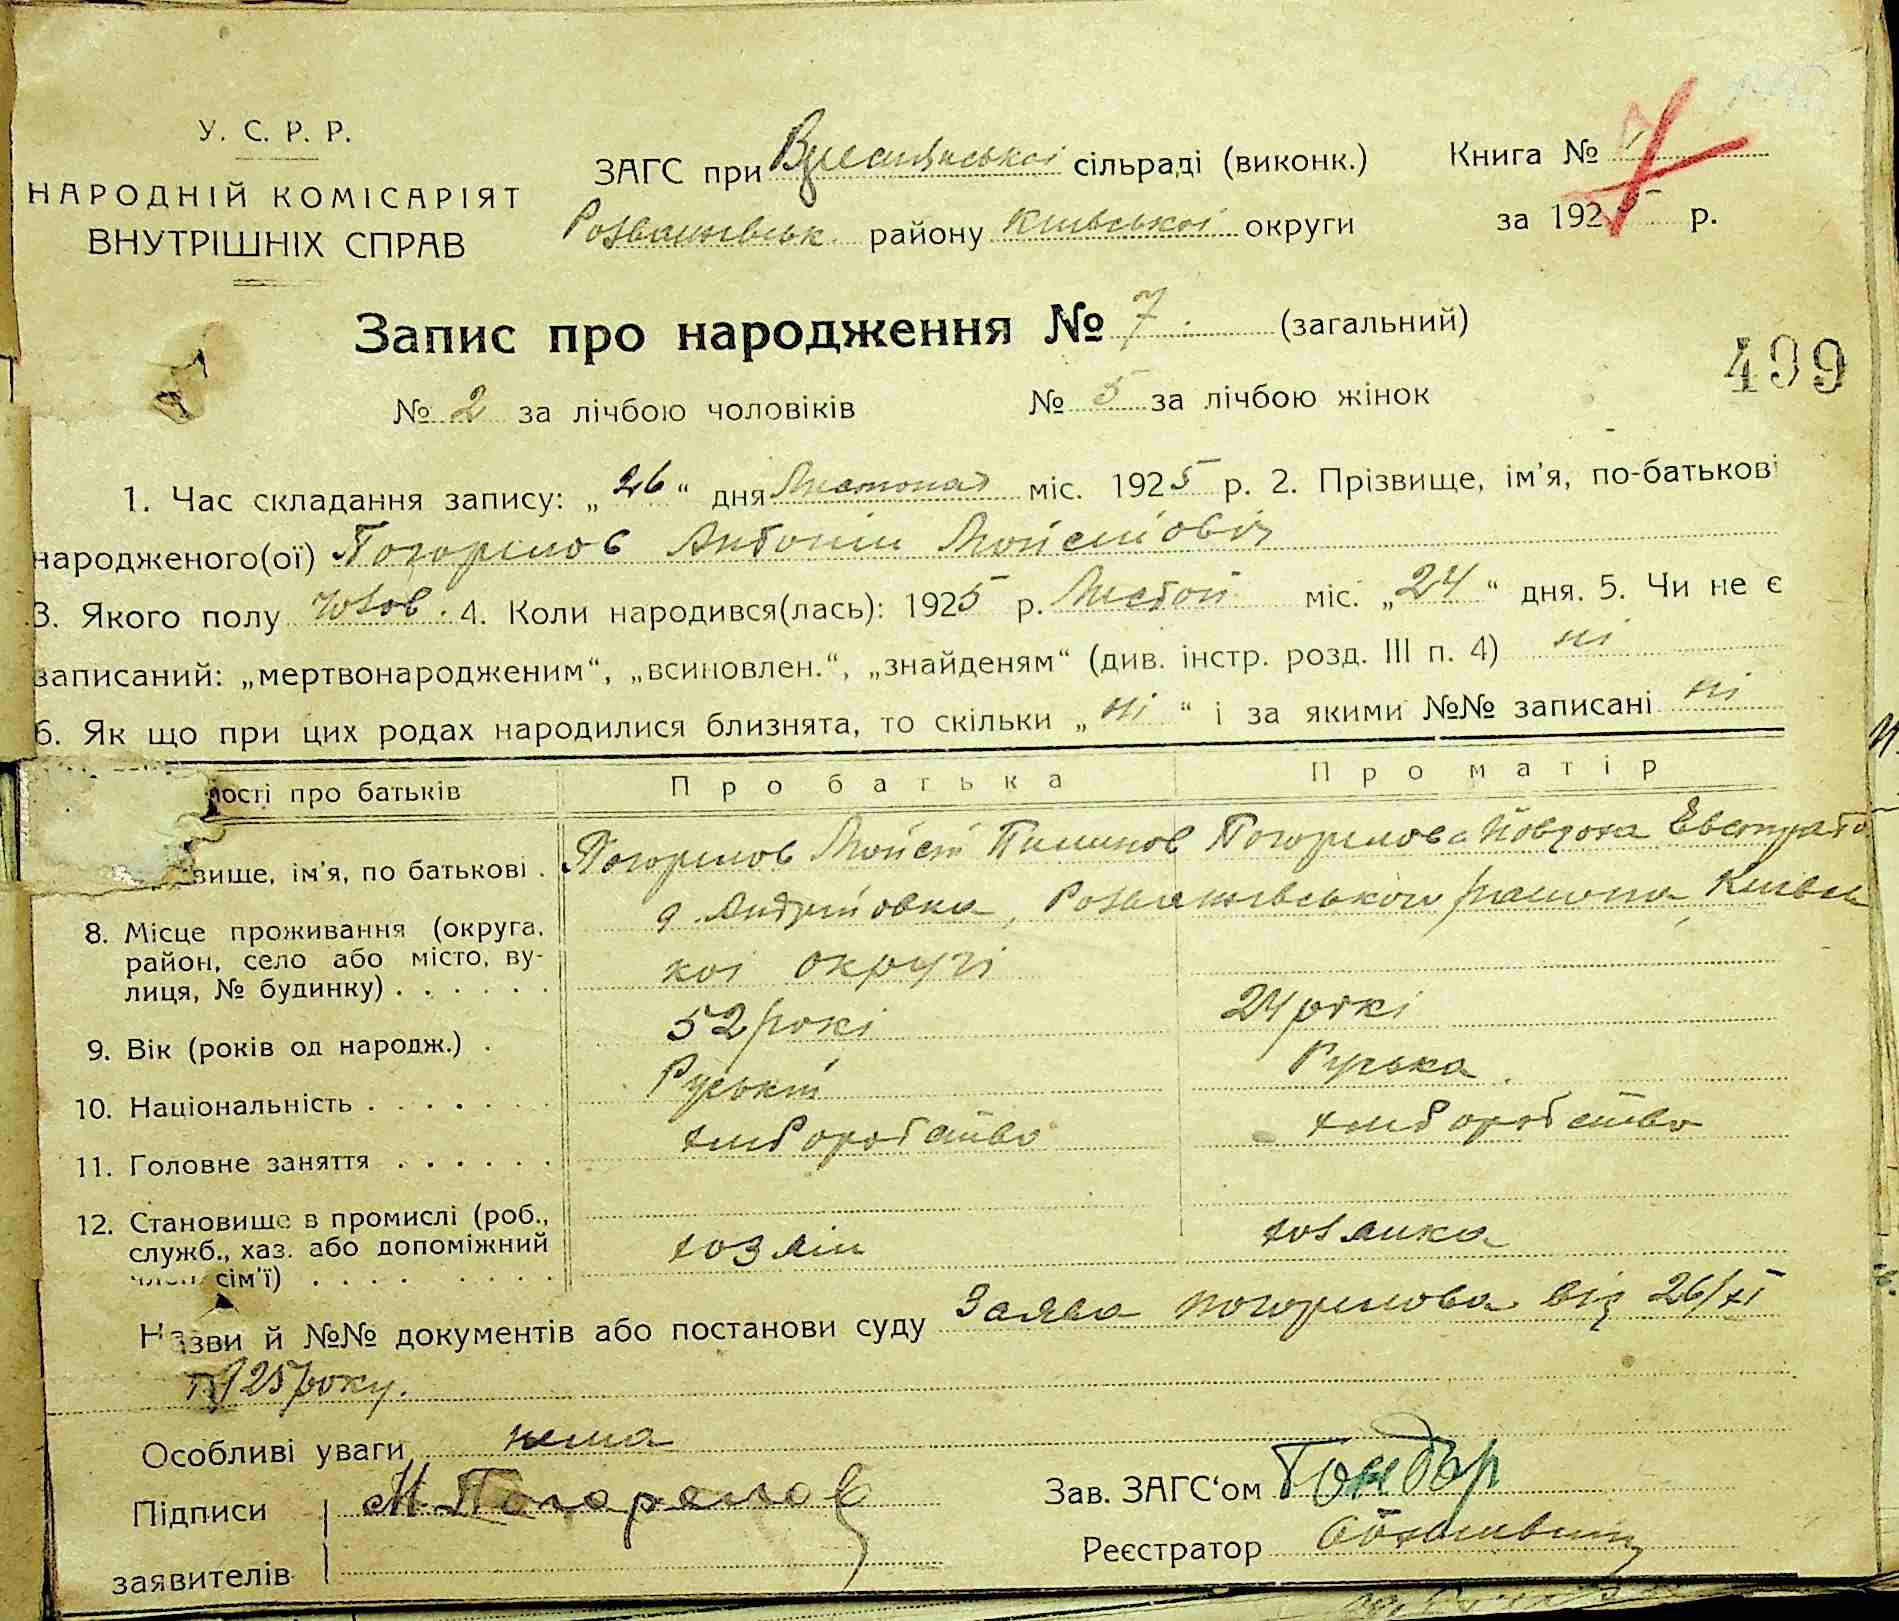 У. С. Р. Р.
НАРОДНІЙ КОМІСАРІЯТ
ВНУТРІШНІХ СПРАВ
ЗАГС при сільраді (виконк.)
Розважівськ. району Київської округи
Книга № 1
за 1925 р.
7
Запис про народження № 7. (загальний)
499
№ 2 за лічбою чоловіків № 5 за лічбою жінок
1. Час складання запису: „26“ дня Листопад міс. 1925 р. 2. Прізвище, ім'я, по-батькові
народженого(ої) Погорілов Антоній Мойсійовіч
3. Якого полу чолов. 4. Коли народився(лась): 1925 р. Листоп міс. „24“ дня. 5. Чи не є
записаний: „мертвонародженим“, „всиновлен.“, „знайденям“ (див. інстр. розд. III п. 4) ні
6. Як що при цих родах народилися близнята, то скільки „ні“ і за якими №№ записані ні
ності про батьків Про батька Про матір
вище, ім'я, по батькові . Погорілов Мойсій Пилипов Погорілова Явдоха Евстрато
8. Місце проживання (округа, район, село або місто, вулиця, № будинку) . . . . . .
д. Андріовка, Розважівського району, Київсь
кої округі
9. Вік (років од народж.) . 52 рокі 24 рокі
10. Національність . . . . . . . Руський Руська
11. Головне заняття . . . . . . хліборобство хліборобство
12. Становище в промислі (роб.,
служб., хаз. або допоміжний
член сім'ї) . . . . . . . . . хозяін хозяика
Назви й №№ документів або постанови суду Заява Погорілова від 26/XI
1925 року.
Особливі уваги нема
Підписи М. Погорелов
заявителів
Зав. ЗАГС'ом
Реєстратор